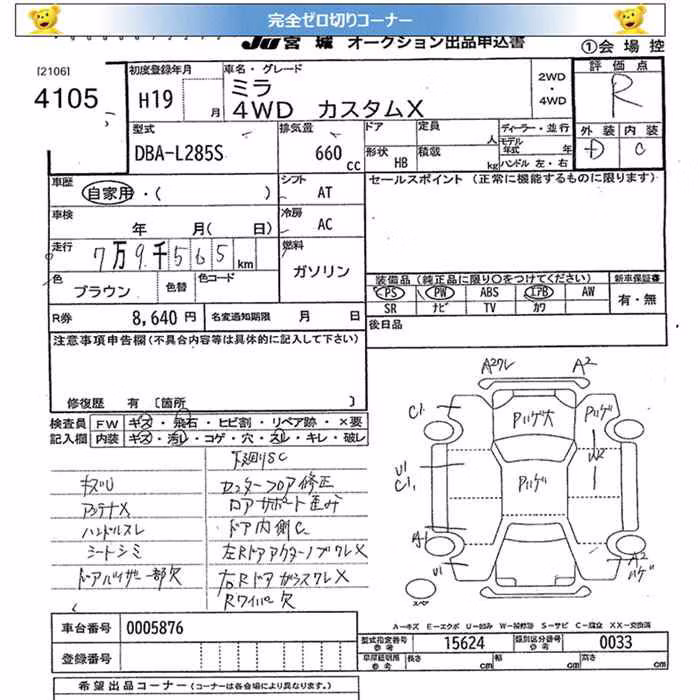 完全ゼロ切りコーナー
JU 宮 城 オークション出品申込書
①会 場 控
[2106]
4105
初度登録年月
H19 月
車名・グレード
ミラ
4WD カスタムX
2WD
・
4WD
評 価 点
R
型式
DBA-L285S
排気量
660 cc
ドア
形状 HB
定員 人
積載 kg
ディーラー・並行
モデル年式 年
ハンドル 左・右
外 装 内 装
D C
車歴
自家用・( )
シフト
AT
セールスポイント (正常に機能するものに限ります)
車検
年 月( 日)
冷房
AC
走行
7万9千565km
燃料
ガソリン
色
ブラウン
色替
色コード
装備品 (純正品に限り○をつけてください)
新車保証書
PS PW ABS エアB AW
有・無
SR ナビ TV カワ
R券 8,640 円
名変通知期限 月 日
後日品
注意事項申告欄(不具合内容等は具体的に記入して下さい)
修復歴 有 [箇所 ]
検査員 FW キズ・飛石・ヒビ割・リペア跡・×要
記入欄 内装 キズ・汚レ・コゲ・穴・スレ・キレ・破レ
下廻りSC
キズU
センターフロア修正
アンテナX
ロアサポート歪み
ハンドルスレ
ドア内側C
シートシミ
左RドアアクターノブワレX
ドアバイザー一部欠
右RドアガラスワレX
Rワイパー欠
A2ワレ
A2
C1
Pハゲ大
Pハゲ
U1
C1
Pハゲ
W2
A1
U1
A2
ハゲ
スペア
A－キズ E－エクボ U－凹み W－補修跡 S－サビ C－腐食 XX－交換済
車台番号 0005876
型式指定番号 参考 15624
類別区分番号 参考 0033
登録番号
車庫証明用 参考
長さ cm
幅 cm
高さ cm
希望出品コーナー (コーナーは各会場により異なります。)